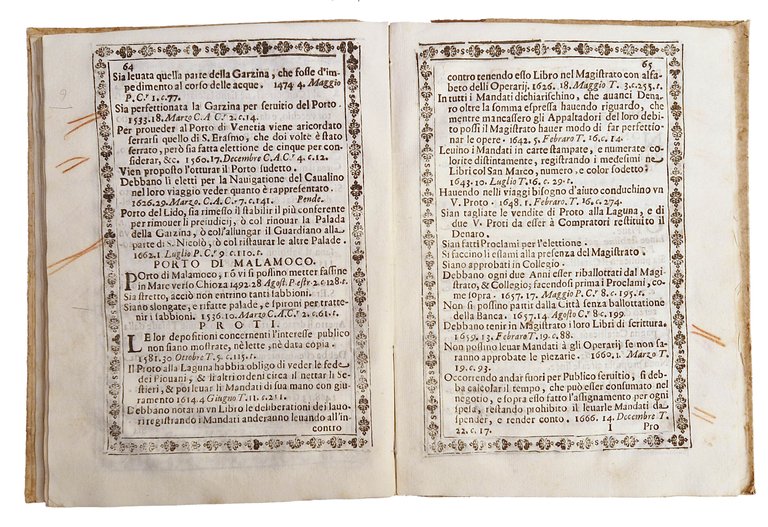 64
Sia leuata quella parte della Garzina, che fosse d'im-
pedimento al corso delle acque. 1474 4. Maggio
P. C.° 1. c. 77.
Sia perfettionata la Garzina per seruitio del Porto.
1533. 18. Marzo C. A C.° 2. c. 14.
Per proueder al Porto di Venetia viene aricordato
serrarsi quello di S. Erasmo, che doi volte è stato
serrato, però sia fatta elettione de cinque per con-
siderar, &c. 1560. 17. Decembre C. A. C.° 4. c. 12.
Vien proposto l'otturar il Porto sudetto.
Debbano li eletti per la Nauigatione del Caualino
nel loro viaggio veder quanto è rappresentato.
1626. 29. Marzo C. A. C.° 7. c. 141. Pende.
Porto del Lido, sia rimesso il stabilir il più conferente
per rimouer li preiudicij, ò col rinouar la Palada
della Garzina, ò col'allungar il Guardiano alla
parte di S. Nicolò, ò col ristaurar le altre Palade.
1662. 1. Luglio P. C.° 9 c. 110. t.
PORTO DI MALAMOCO.
Porto di Malamoco, nõ vi si possino metter fassine
in Mare verso Chioza 1492. 28 Agost. P estr. 2. c. 128. t.
Sia stretto, acciò non entrino tanti sabbioni.
Siano slongate, e rifatte palade, e spironi per tratte-
nir i sabbioni. 1536. 10. Marzo C. A. C.° 2. c. 61. t.
PROTI.
LE lor depositioni concernenti l'interesse publico
non siano mostrate, nè lette, nè data copia.
1581. 30. Ottobre T. 5. c. 115. t.
Il Proto alla Laguna habbia obligo di veder le fede
dei Piouani, & il altri ordeni circa il nettar li Se-
stieri, & poi leuar li Mandati di sua mano con giu-
ramento 1614. 4 Giugno T. 11. c. 211.
Debbano notar in vn Libro le deliberationi dei lauo-
ri registrando i Mandati anderanno leuando all'in-
contro
65
contro tenendo esso Libro nel Magistrato con alfa-
beto delli Operarij. 1626. 18. Maggio T. 3. c. 255. t.
In tutti i Mandati dichiarischino, che auanci Dena-
ro oltre la somma espressa hauendo riguardo, che
mentre mancassero gli Appaltadori del loro debi-
to possi il Magistrato hauer modo di far perfettio-
nar le opere. 1642. 5. Febraro T. 16. c. 14.
Leuino i Mandati in carte stampate, e numerate co-
lorite distintamente, registrando i medesimi ne
Libri col San Marco, numero, e color sodetto:
1643. 10. Luglio T. 16. c. 29. t.
Hauendo nelli viaggi bisogno d'aiuto conduchino vn
V. Proto. 1648. 1. Febraro. T. 16. c. 274.
Sian tagliate le vendite di Proto alla Laguna, e di
due V. Proti da esser à Compratori restituito il
Denaro.
Sian fatti Proclami per l'elettione.
Si faccino li essami alla presenza del Magistrato.
Siano approbati in Collegio.
Debbano ogni due Anni esser riballottati dal Magi-
strato, & Collegio; facendosi prima i Proclami, co-
me sopra. 1657. 17. Maggio P. C.° 8. c. 195. t.
Non si possino partir dalla Città senza ballottatione
della Banca. 1657. 14. Agosto C.° 8 c. 199.
Debbano tenir in Magistrato i loro Libri de scrittura.
1659. 13. Febraro T. 19. c. 88.
Non possino leuar Mandati à gli Operarij se non sa-
ranno approbate le piezarie. 1660. 1. Marzo T.
19. c. 93.
Occorrendo andar fuori per Publico seruitio, si deb-
ba calcolar il tempo, che può esser consumato nel
negotio, e sopra esso fatto l'assignamento per ogni
spesa, restando prohibito il leuarle Mandati da
spender, e render conto. 1666. 14. Decembre T.
22. c. 17. I Pro